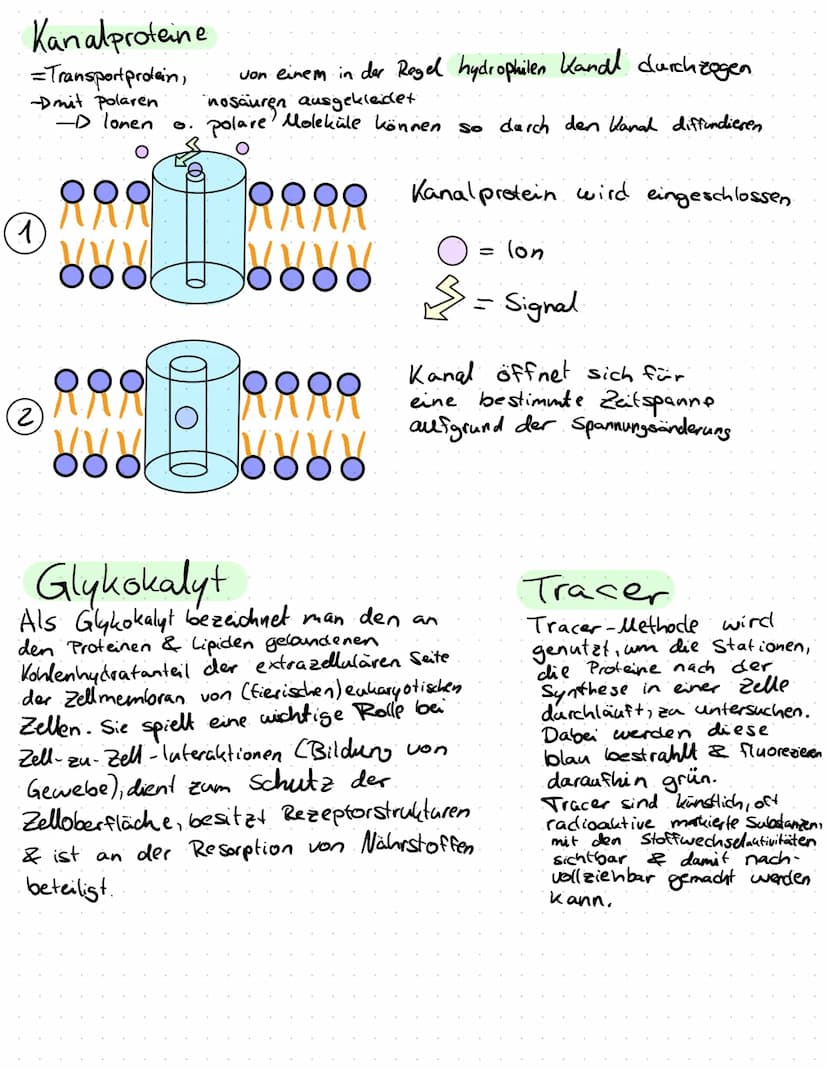 Kanalproteine
=Transportprotein, von einem in der Regel hydrophilen Kanal durchzogen
→ mit polaren nosäuren ausgekleidet
→ Ionen o. polare Moleküle können so durch den Kanal diffundieren
1
Kanalprotein wird eingeschlossen
= Ion
= Signal
2
Kanal öffnet sich für
eine bestimmte Zeitspanne
aufgrund der Spannungsänderung
Glykokalyt
Als Glykokalyt bezeichnet man den an
den Proteinen & Lipiden gebundenen
Kohlenhydratanteil der extrazellulären Seite
der Zellmembran von (tierischen) eukaryotischen
Zellen. Sie spielt eine wichtige Rolle bei
Zell-zu-Zell-Interaktionen (Bildung von
Gewebe), dient zum Schutz der
Zelloberfläche, besitzt Rezeptorstrukturen
& ist an der Resorption von Nährstoffen
beteiligt.
Tracer
Tracer-Methode wird
genutzt, um die Stationen,
die Proteine nach der
Synthese in einer Zelle
durchläuft, zu untersuchen.
Dabei werden diese
blau bestrahlt & fluoreszieren
daraufhin grün.
Tracer sind künstlich, oft
radioaktive markierte Substanzen,
mit den Stoffwechselaktivitäten
sichtbar & damit nach-
vollziehbar gemacht werden
kann.